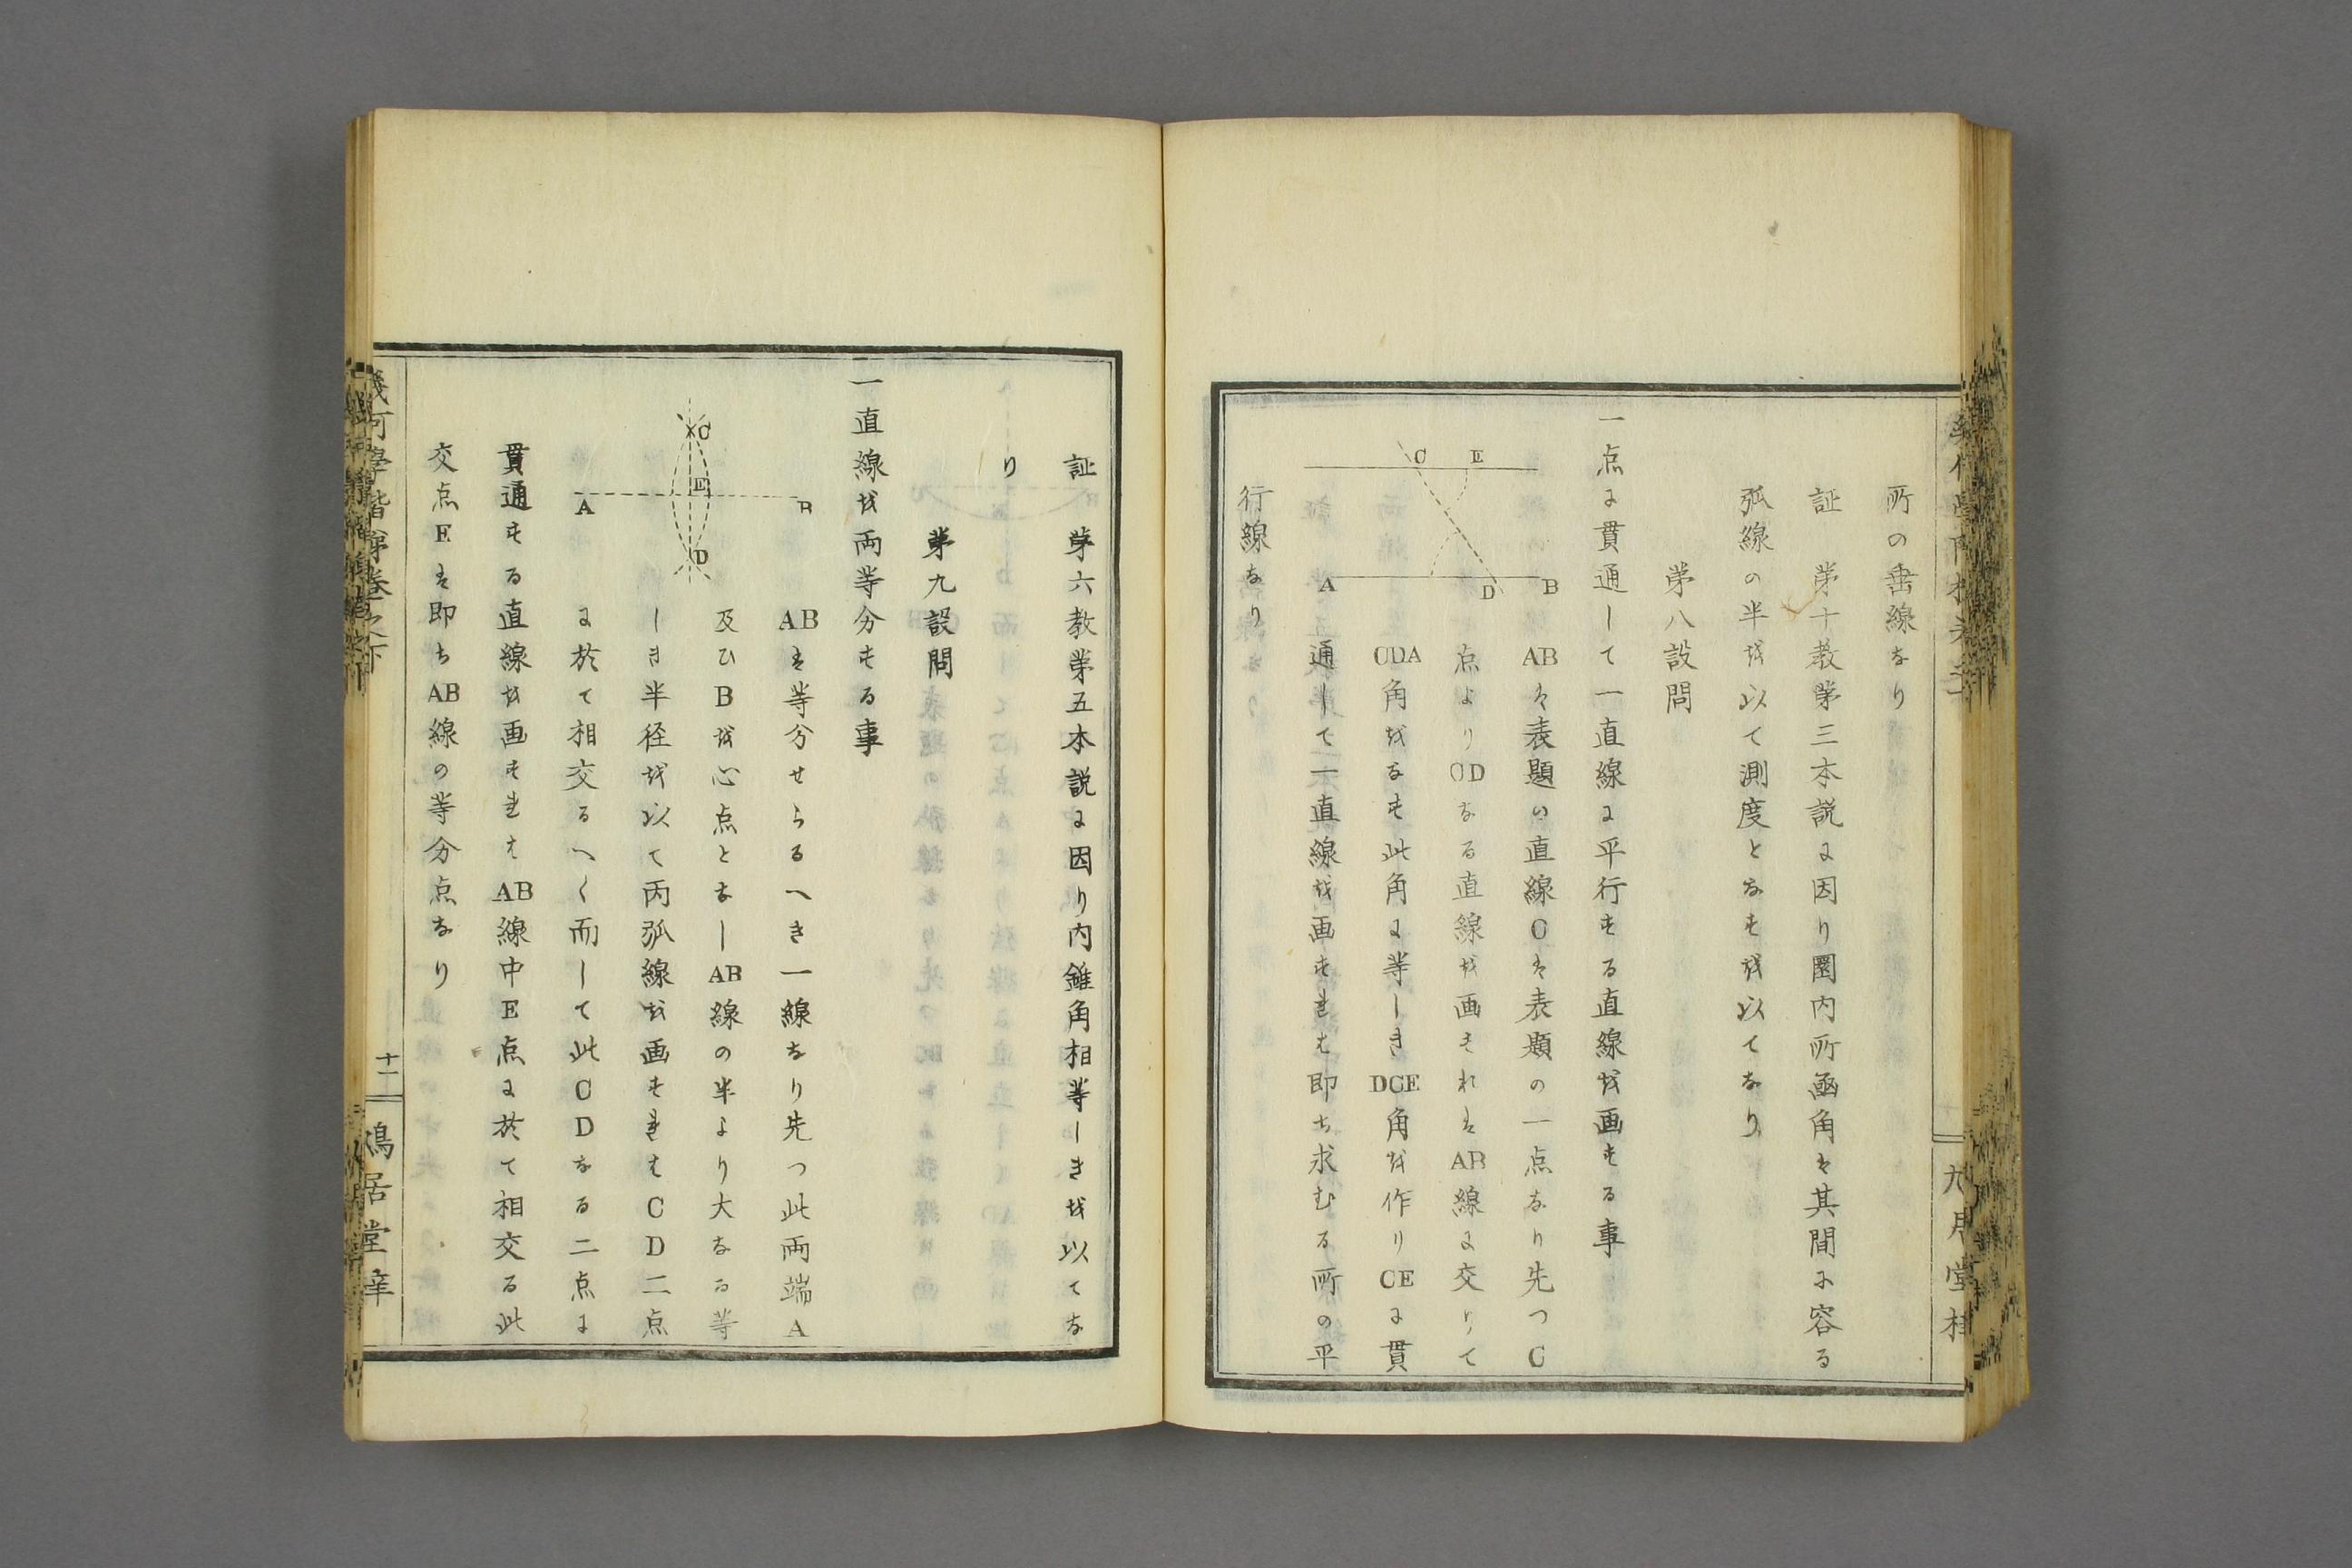 所の垂線なり
証 第十教第三本説に因り圏内所函角は其間に容る
弧線の半を以て測度となすを以てなり
第八設問
一点に貫通して一直線に平行する直線を画する事
C E
A D B
ABは表題の直線Cは表題の一点なり先つC
点よりCDなる直線を画されはAB線に交りて
CDA角をなす此角に等しきDCE角を作りCEに貫
通して一直線を画すれは即ち求むる所の平
行線なり
証 第六教第五本説に因り内錯角相等しきを以てな
り
第九設問
一直線を両等分する事
C
A E B
D
ABは等分せらるへき一線なり先つ此両端A
及ひBを心点となしAB線の半より大なる等
しき半径を以て丙弧線を画すれはCD二点
に於て相交るへく而して此CDなる二点に
貫通する直線を画すれはAB線中E点に於て相交る此
交点Eは即ちAB線の等分点なり
幾何學階梯巻之下
十一
鳩居堂